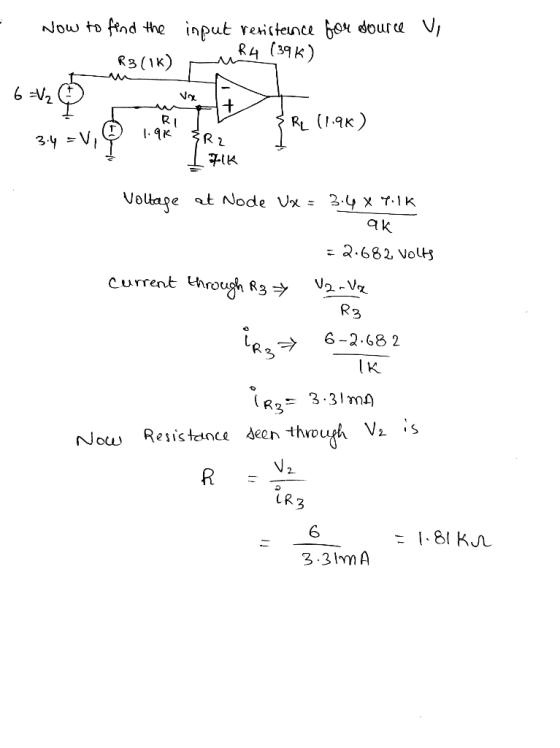 Now to find the input resistance for source V1
R4 (39K)
R3 (1K)
6 = V2
Vx
R1
1.9K
R2
7.1K
3.4 = V1
RL (1.9K)
Voltage at Node Vx = 3.4 x 7.1K / 9K
= 2.682 Volts
Current through R3 ⇒ V2 - Vx / R3
iR3 ⇒ 6 - 2.682 / 1K
iR3 = 3.31mA
Now Resistance seen through V2 is
R = V2 / iR3
= 6 / 3.31mA = 1.81 KΩ